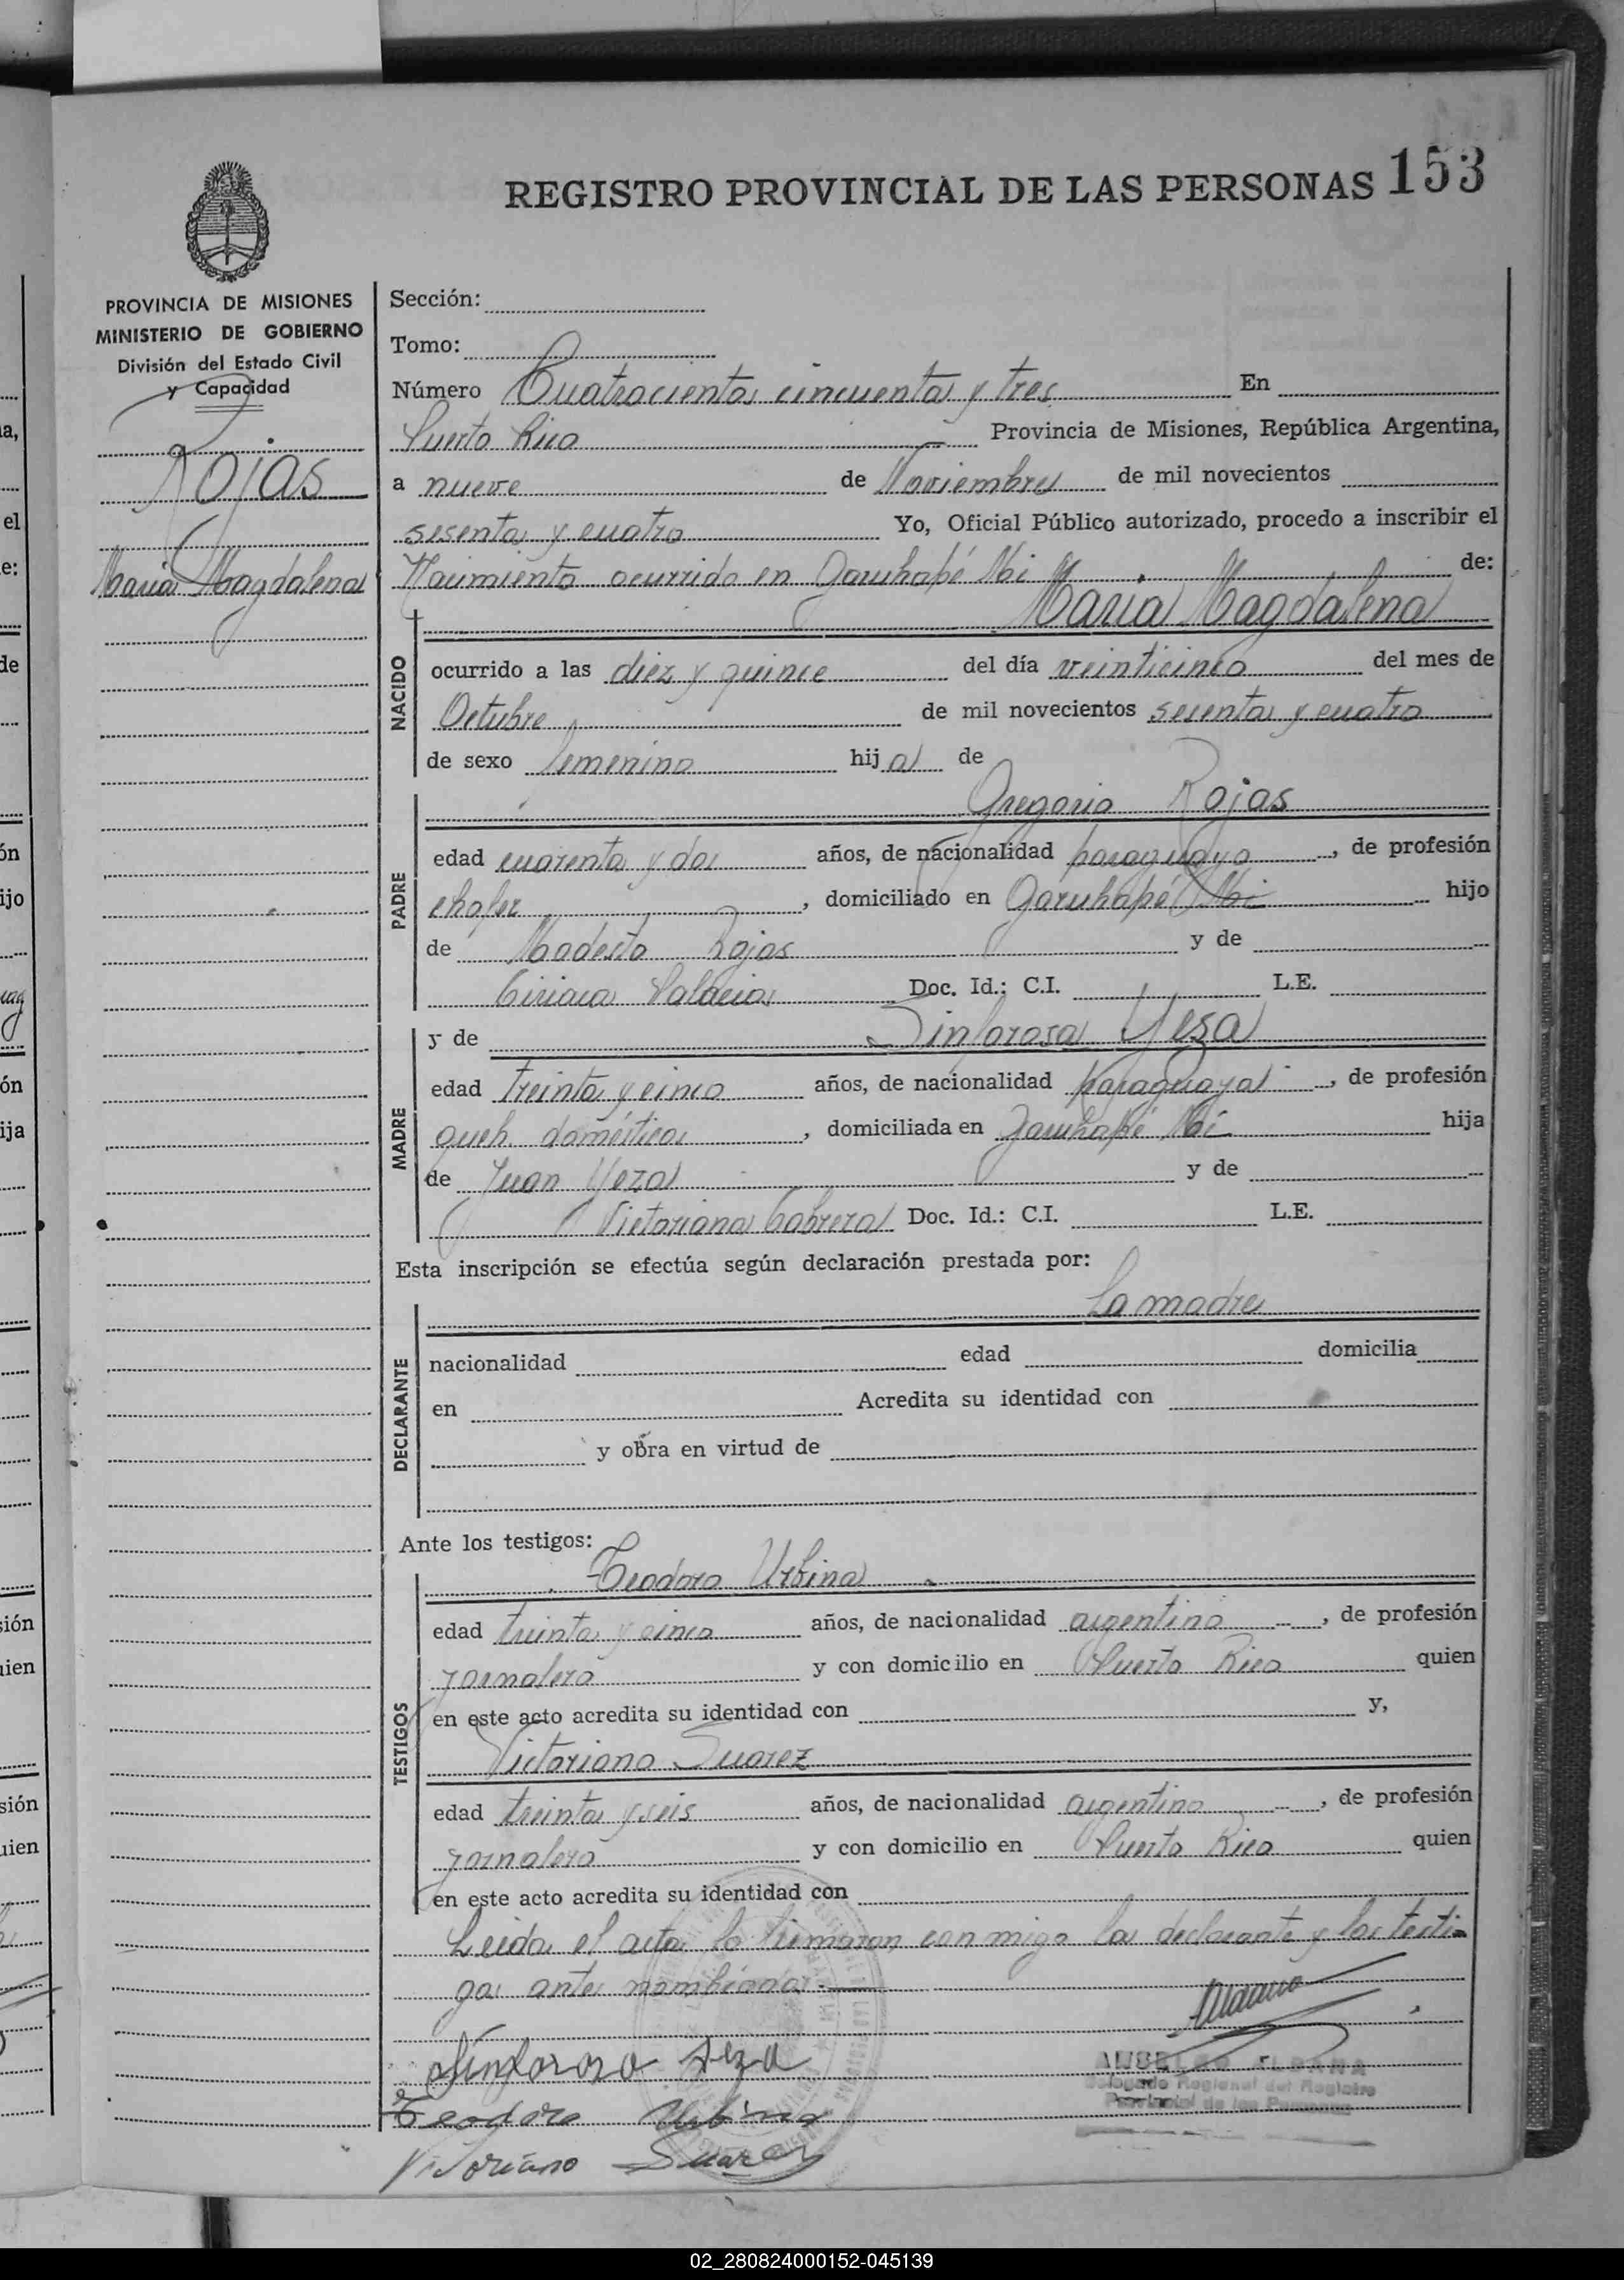 REGISTRO PROVINCIAL DE LAS PERSONAS 153
PROVINCIA DE MISIONES
MINISTERIO DE GOBIERNO
División del Estado Civil
y Capacidad
Rojas
Maria Magdalena
Sección:
Tomo:
Número Cuatrocientos cincuenta y tres En
Puerto Rico Provincia de Misiones, República Argentina,
a nueve de Noviembre de mil novecientos
sesenta y cuatro Yo, Oficial Público autorizado, procedo a inscribir el
Nacimiento ocurrido en Garuhapé Mi de:
Maria Magdalena
NACIDO
ocurrido a las diez y quince del día veinticinco del mes de
Octubre de mil novecientos sesenta y cuatro
de sexo femenino hija de
PADRE
Gregorio Rojas
edad cuarenta y dos años, de nacionalidad paraguayo, de profesión
chofer, domiciliado en Garuhapé Mi hijo
de Modesto Rojas y de
Ciriaca Palacios Doc. Id.: C.I. L.E.
MADRE
y de Sinforosa Yeza
edad treinta y cinco años, de nacionalidad paraguaya, de profesión
queh. domésticos, domiciliada en Garuhapé Mi hija
de Juan Yeza y de
Victoriana Cabrera Doc. Id.: C.I. L.E.
Esta inscripción se efectúa según declaración prestada por:
La madre
DECLARANTE
nacionalidad edad domicilia
en Acredita su identidad con
y obra en virtud de
Ante los testigos:
TESTIGOS
Teodoro Urbina
edad treinta y cinco años, de nacionalidad argentino, de profesión
jornalero y con domicilio en Puerto Rico quien
en este acto acredita su identidad con y,
Victoriano Suarez
edad treinta y seis años, de nacionalidad argentino, de profesión
jornalero y con domicilio en Puerto Rico quien
en este acto acredita su identidad con
Leida el acta la firmaron con migo la declarante y los testi-
gos antes nombrados.
Sinforoza Yeza
Delegado Regional del Registro
Provincial de las Personas
Teodoro Urbina
Vitoriano Suarez
02_280824000152-045139